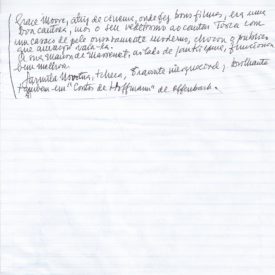 Grace Moore, atriz de cinema, onde fez bons filmes, era uma
boa cantora, mas o seu vedetismo ao cantar Tosca com
um casaco de pele ousadamente moderno, chocou o público
que ameaçou vaiá-la.
Manon de Massenet, ao lado de, funcionou
bem melhor.
Jarmila Novotna, tcheca, Traviata inesquecível, brilhante
também em "Contos de Hoffmann" de Offenbach.